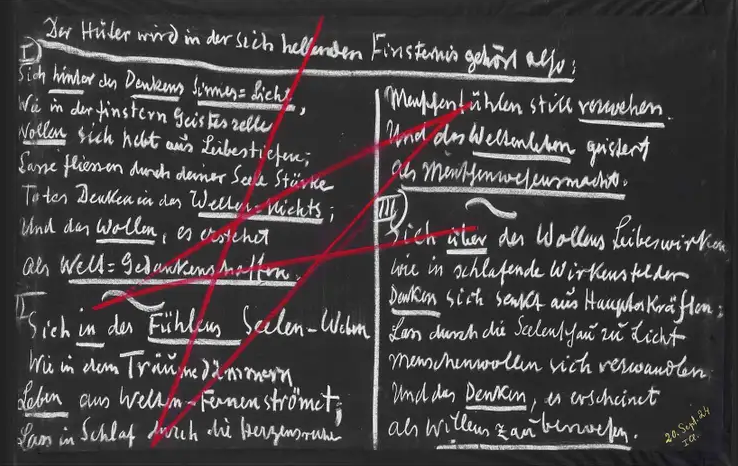 Der Hüter wird in der sich hellenden Finsternis gehört also:
I
Sieh hinter des Denkens Sinnes=Licht,
Wie in der finstern Geisteszelle
Wollen sich hebt aus Leibestiefen;
Lasse fliessen durch deiner Seele Stärke
Totes Denken in das Welten=Nichts;
Und das Wollen, es erstehet
als Welt=Gedankenschaffen.
II
Sieh in des Fühlens Seelen-Weben
Wie in dem Träumedämmern
Leben aus Welten-Fernen strömet;
Lass in Schlaf durch die Herzensruhe
Menschenfühlen still verwehen.
Und das Weltenleben geistert
als Menschenwesensmacht.
III
Sieh über des Wollens Leibeswirken
Wie in schlafende Wirkensfelder
Denken sich senkt aus Haupteskräften;
Lass durch die Seelenschau zu Licht
Menschenwollen sich verwandlen.
Und das Denken, es erscheinet
als Willenszauberwesen.
20. Sept. 24